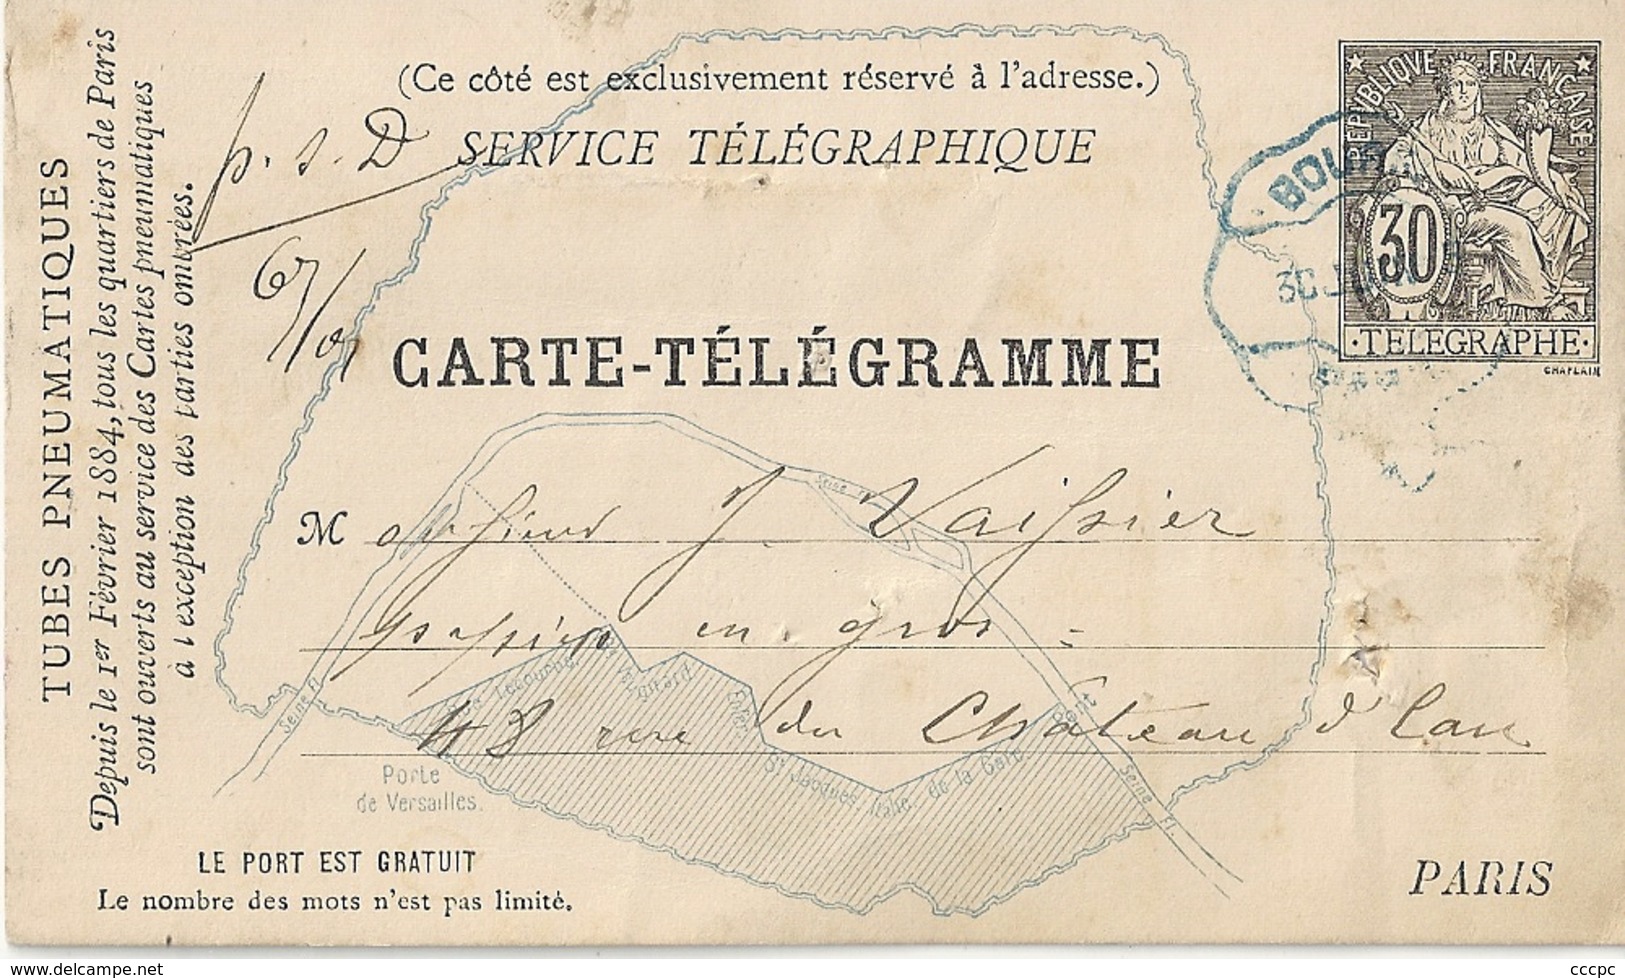 (Ce côté est exclusivement réservé à l'adresse.)
SERVICE TÉLÉGRAPHIQUE
CARTE-TÉLÉGRAMME
TUBES PNEUMATIQUES
Depuis le 1er Février 1884, tous les quartiers de Paris
sont ouverts au service des Cartes pneumatiques
à l'exception des parties ombrées.
p. s. D
RÉPUBLIQUE FRANÇAISE
30
·TELEGRAPHE·
CHAPLAIN
Monsieur J. Vaissier
en gros =
48 rue du Château d'Eau
Seine Fl.
Seine Fl.
Lecourbe
Vaugirard
St Jacques, Italie, de la Gare.
Seine Fl.
Porte
de Versailles.
LE PORT EST GRATUIT
Le nombre des mots n'est pas limité.
PARIS
cccpc